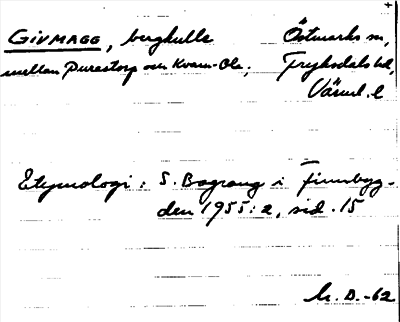 GIVMAGG, bergkulle Östmarks sn,
mellan Purastorp och Kvarn-Ola; Fryksdals hd,
Värml. l
Etymologi: S. Bograng i Finnbyg-
den 1955:2, sid. 15
-62